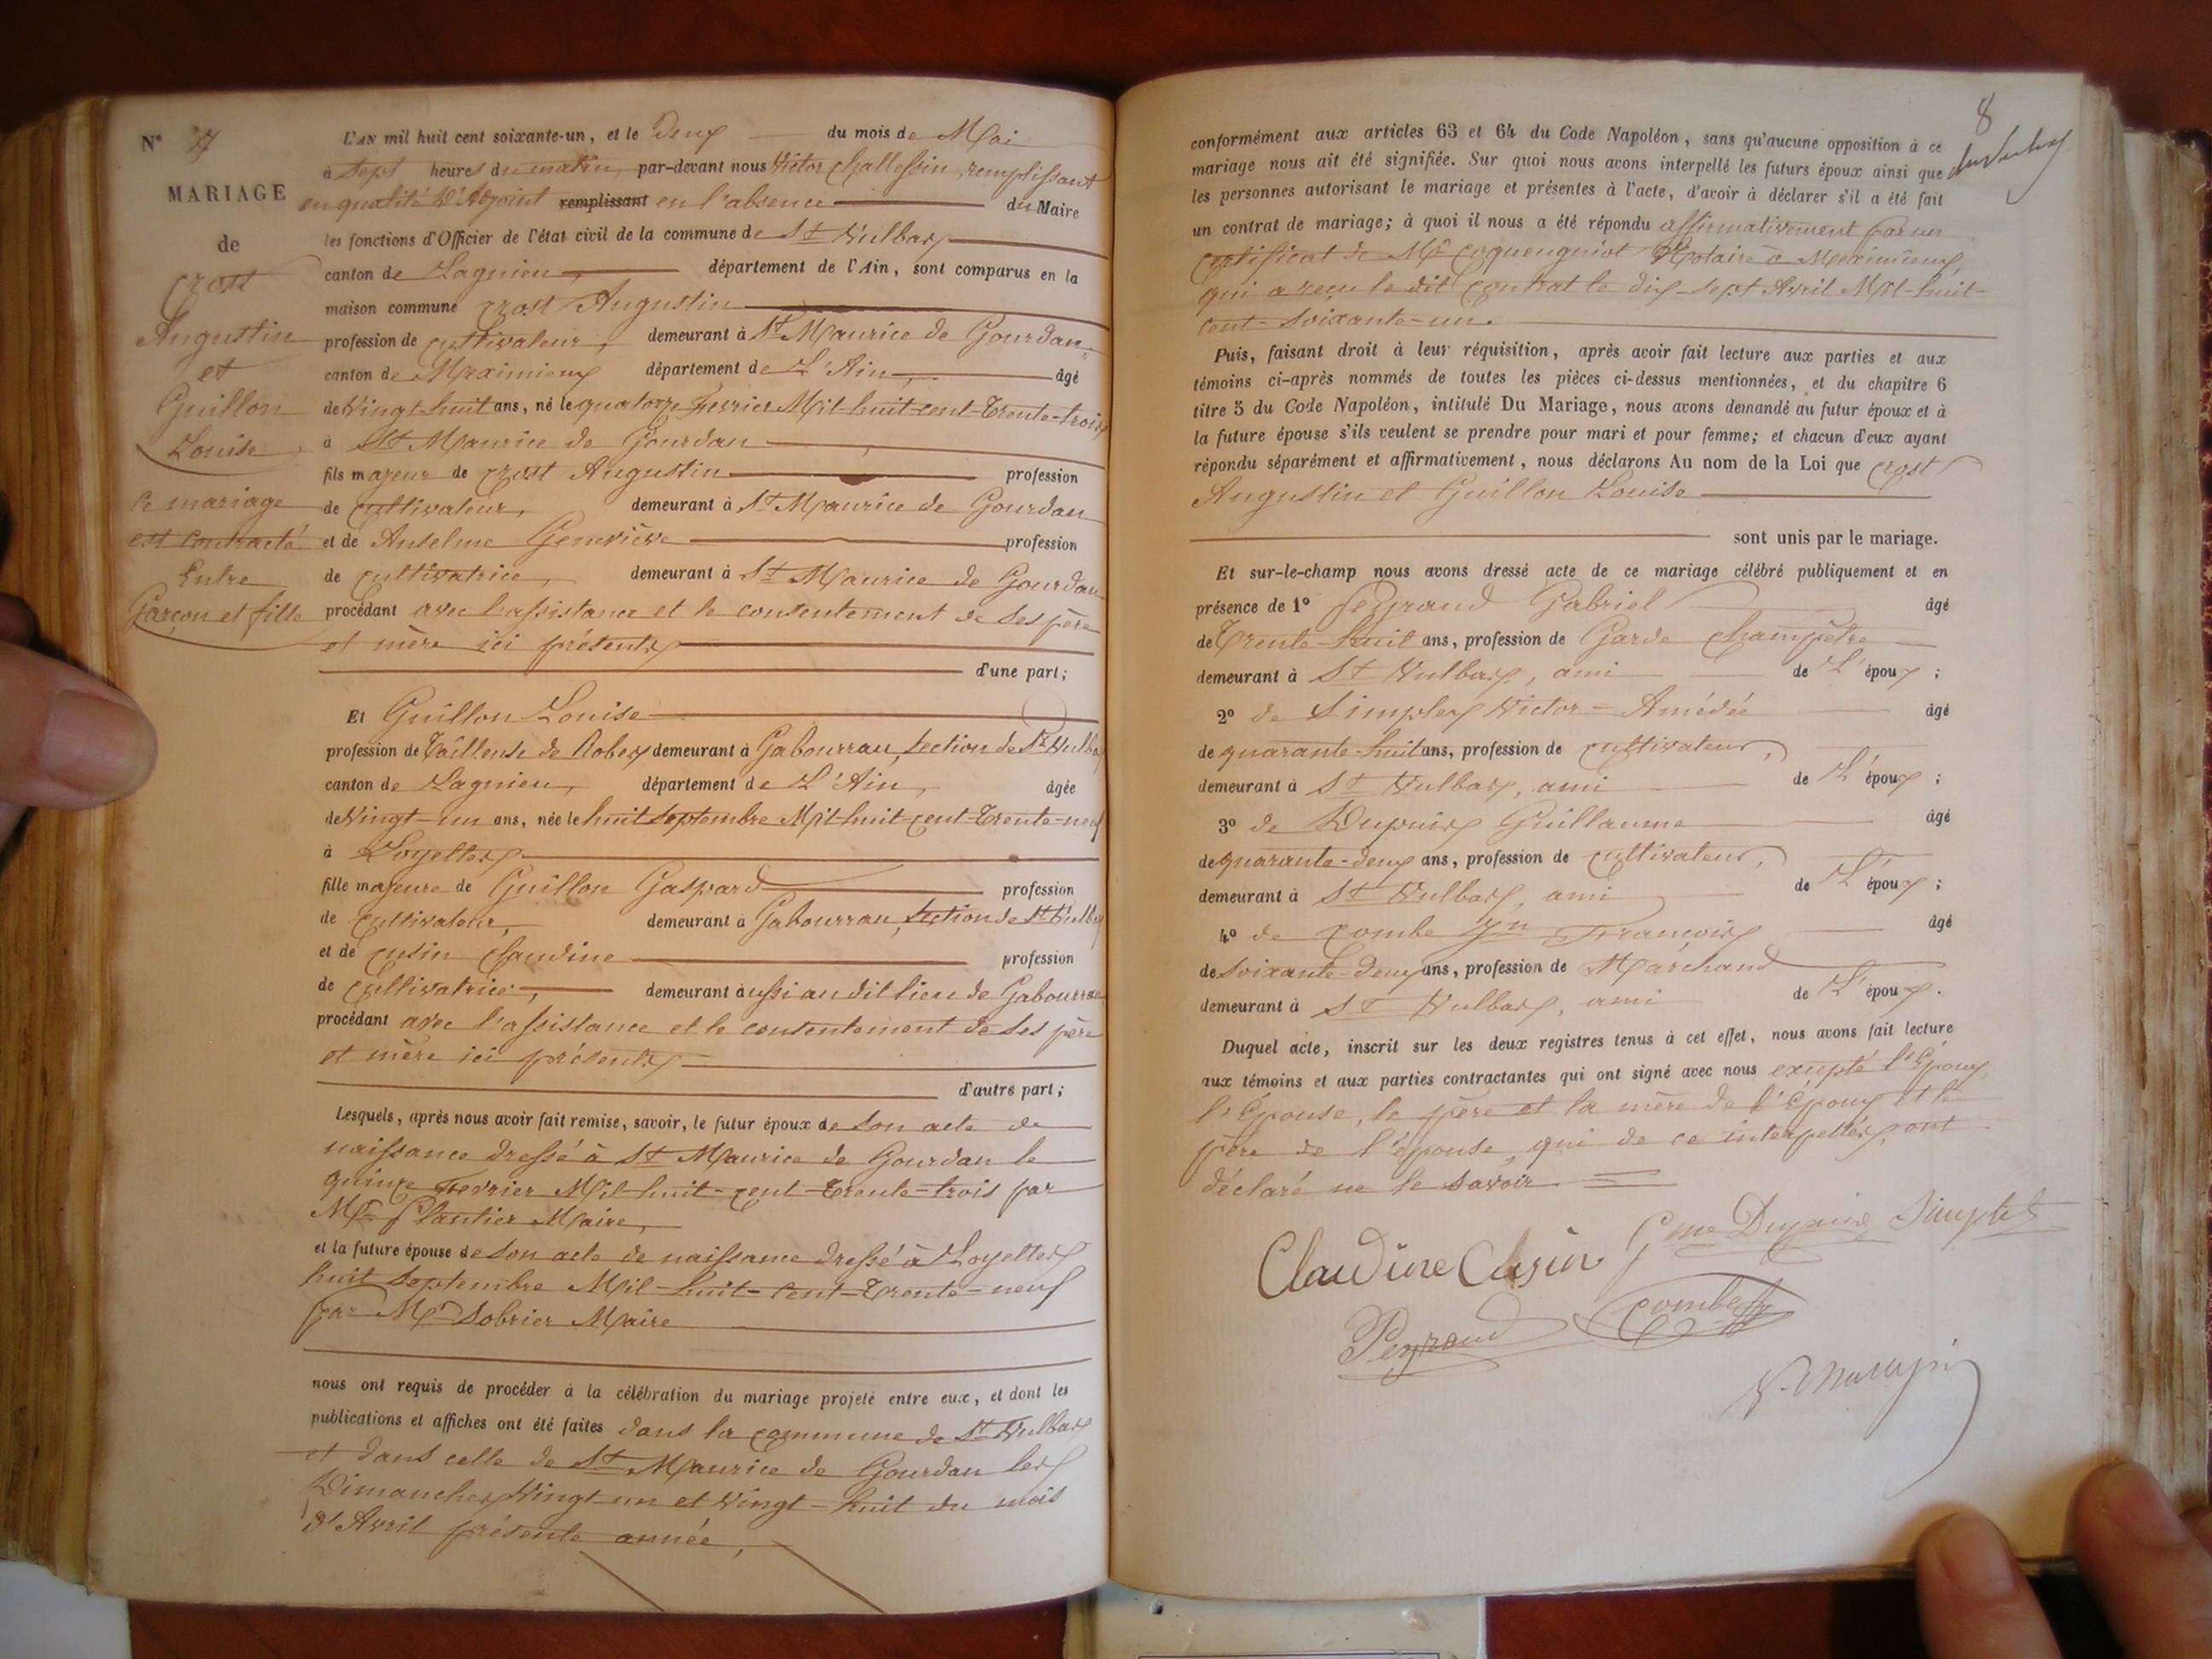 N° 7
MARIAGE
de
Crost
Augustin
et
Guillon
Louise
Ce mariage
est contracté
Entre
Garçon et fille
L'AN mil huit cent soixante-un, et le Deux du mois de Mai
à sept heures du matin, par-devant nous Victor remplissant
en qualité d'Adjoint remplissant en l'absence du Maire
les fonctions d'Officier de l'état civil de la commune de St Vulbas
canton de Lagnieu, département de l'Ain, sont comparus en la
maison commune Crost Augustin
profession de cultivateur, demeurant à St Maurice de Gourdan
canton de Meximieux département de L'Ain, âgé
de Vingt-huit ans, né le quatorze Fevrier Mil-huit-cent-Trente-trois
à St Maurice de Gourdan
fils majeur de Crost Augustin profession
de Cultivateur, demeurant à St Maurice de Gourdan
et de Anselme Geneviève profession
de Cultivatrice, demeurant à St Maurice de Gourdan
procédant avec l'assistance et le consentement de ses père
et mère ici présents
d'une part;
Et Guillon Louise
profession de Tailleuse de Robes demeurant à Gabourrau, section de St Vulbas
canton de Lagnieu, département de L'Ain, âgée
de Vingt-un ans, née le huit Septembre Mil-huit-cent-Trente-neuf
à Loyettes
fille majeure de Guillon Gaspard profession
de Cultivateur, demeurant à Gabourrau, section de St Vulbas
et de Cusin Claudine profession
de Cultivatrice, demeurant aussi au dit lieu de Gabourrau
procédant avec l'assistance et le consentement de ses père
et mère ici présents
d'autre part;
Lesquels, après nous avoir fait remise, savoir, le futur époux de Son acte de
naissance dressé à St Maurice de Gourdan le
quinze Fevrier Mil-huit-cent-Trente-trois par
Mr Plantier Maire,
et la future épouse de Son acte de naissance dressé à Loyettes
huit Septembre Mil-huit-Cent-Trente-neuf
par Mr Sobrier Maire
nous ont requis de procéder à la célébration du mariage projeté entre eux, et dont les
publications et affiches ont été faites dans la commune de St Vulbas
et dans celle de St Maurice de Gourdan les
Dimanches Vingt-un et Vingt-huit du mois
d'Avril présente année,
8
conformément aux articles 63 et 64 du Code Napoléon, sans qu'aucune opposition à ce
mariage nous ait été signifiée. Sur quoi nous avons interpellé les futurs époux ainsi que
les personnes autorisant le mariage et présentes à l'acte, d'avoir à déclarer s'il a été fait
un contrat de mariage; à quoi il nous a été répondu affirmativement par un
certificat de Mr Coquengniot Notaire à Meximieux,
qui a reçu le dit Contrat le dix-sept Avril Mil-huit-
cent-Soixante-un.
Puis, faisant droit à leur réquisition, après avoir fait lecture aux parties et aux
témoins ci-après nommés de toutes les pièces ci-dessus mentionnées, et du chapitre 6
titre 5 du Code Napoléon, intitulé Du Mariage, nous avons demandé au futur époux et à
la future épouse s'ils veulent se prendre pour mari et pour femme; et chacun d'eux ayant
répondu séparément et affirmativement, nous déclarons Au nom de la Loi que Crost
Augustin et Guillon Louise
sont unis par le mariage.
Et sur-le-champ nous avons dressé acte de ce mariage célébré publiquement et en
présence de 1° Peyraud Gabriel âgé
de Trente-huit ans, profession de Garde Champêtre
demeurant à St Vulbas, ami de L'époux;
2° de Simplex Victor-Amédée âgé
de quarante-huit ans, profession de cultivateur,
demeurant à St Vulbas, ami de L'époux;
3° de Dupuis Guillaume âgé
de quarante-deux ans, profession de cultivateur,
demeurant à St Vulbas, ami de L'époux;
4° de Combe Jn François âgé
de Soixante-Deux ans, profession de Marchand
demeurant à St Vulbas, ami de L'époux.
Duquel acte, inscrit sur les deux registres tenus à cet effet, nous avons fait lecture
aux témoins et aux parties contractantes qui ont signé avec nous excepté l'Epoux,
l'Epouse, le père et la mère de l'Epoux et le
père de l'épouse, qui de ce interpellés, ont
déclaré ne le savoir
Claudine Cusin Gme Dupuis Simplex
Peyraud Combe